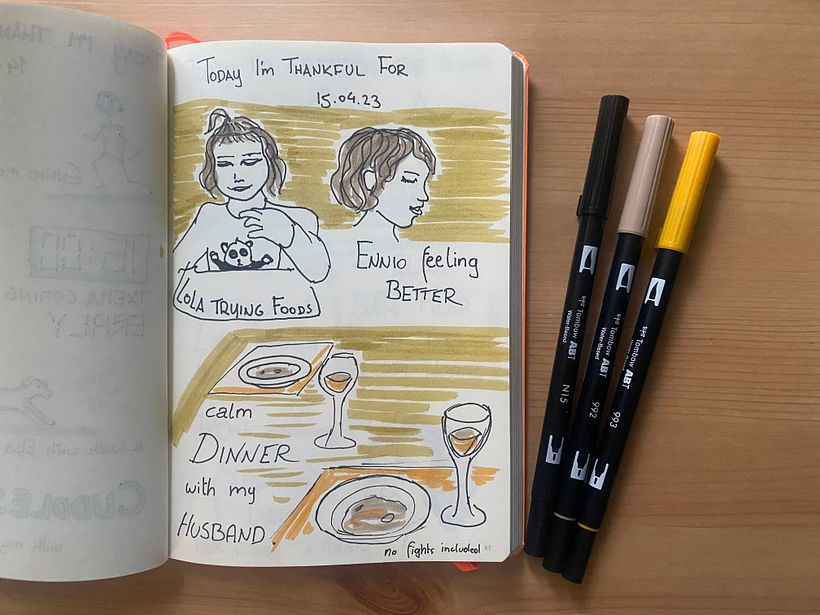 TODAY I'm THANKFUL FOR
15.04.23
ENNIO feeling
BETTER
LOLA TRYING FOODS
calm
DINNER
with my
HUSBAND
no fights included
Tombow ABT
Water-Based
N15
Tombow ABT
Water-Based
992
Tombow ABT
993